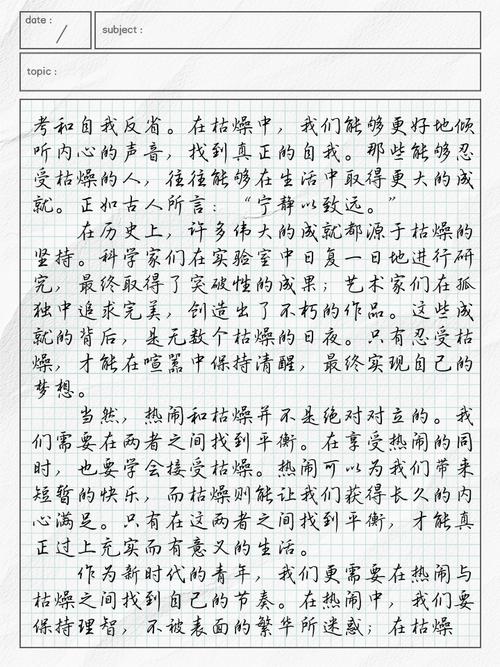 date :
subject :
topic :
考和自我反省。在枯燥中，我们能够更好地倾
听内心的声音，找到真正的自我。那些能够忍
受枯燥的人，往往能够在生活中取得更大的成
就。正如古人所言：“宁静以致远。”
在历史上，许多伟大的成就都源于枯燥的
坚持。科学家们在实验室中日复一日地进行研
究，最终取得了突破性的成果；艺术家们在孤
独中追求完美，创造出了不朽的作品。这些成
就的背后，是无数个枯燥的日夜。只有忍受枯
燥，才能在喧嚣中保持清醒，最终实现自己的
梦想。
当然，热闹和枯燥并不是绝对对立的。我
们需要在两者之间找到平衡。在享受热闹的同
时，也要学会接受枯燥。热闹可以为我们带来
短暂的快乐，而枯燥则能让我们获得长久的内
心满足。只有在这两者之间找到平衡，才能真
正过上充实而有意义的生活。
作为新时代的青年，我们更需要在热闹与
枯燥之间找到自己的节奏。在热闹中，我们要
保持理智，不被表面的繁华所迷惑；在枯燥